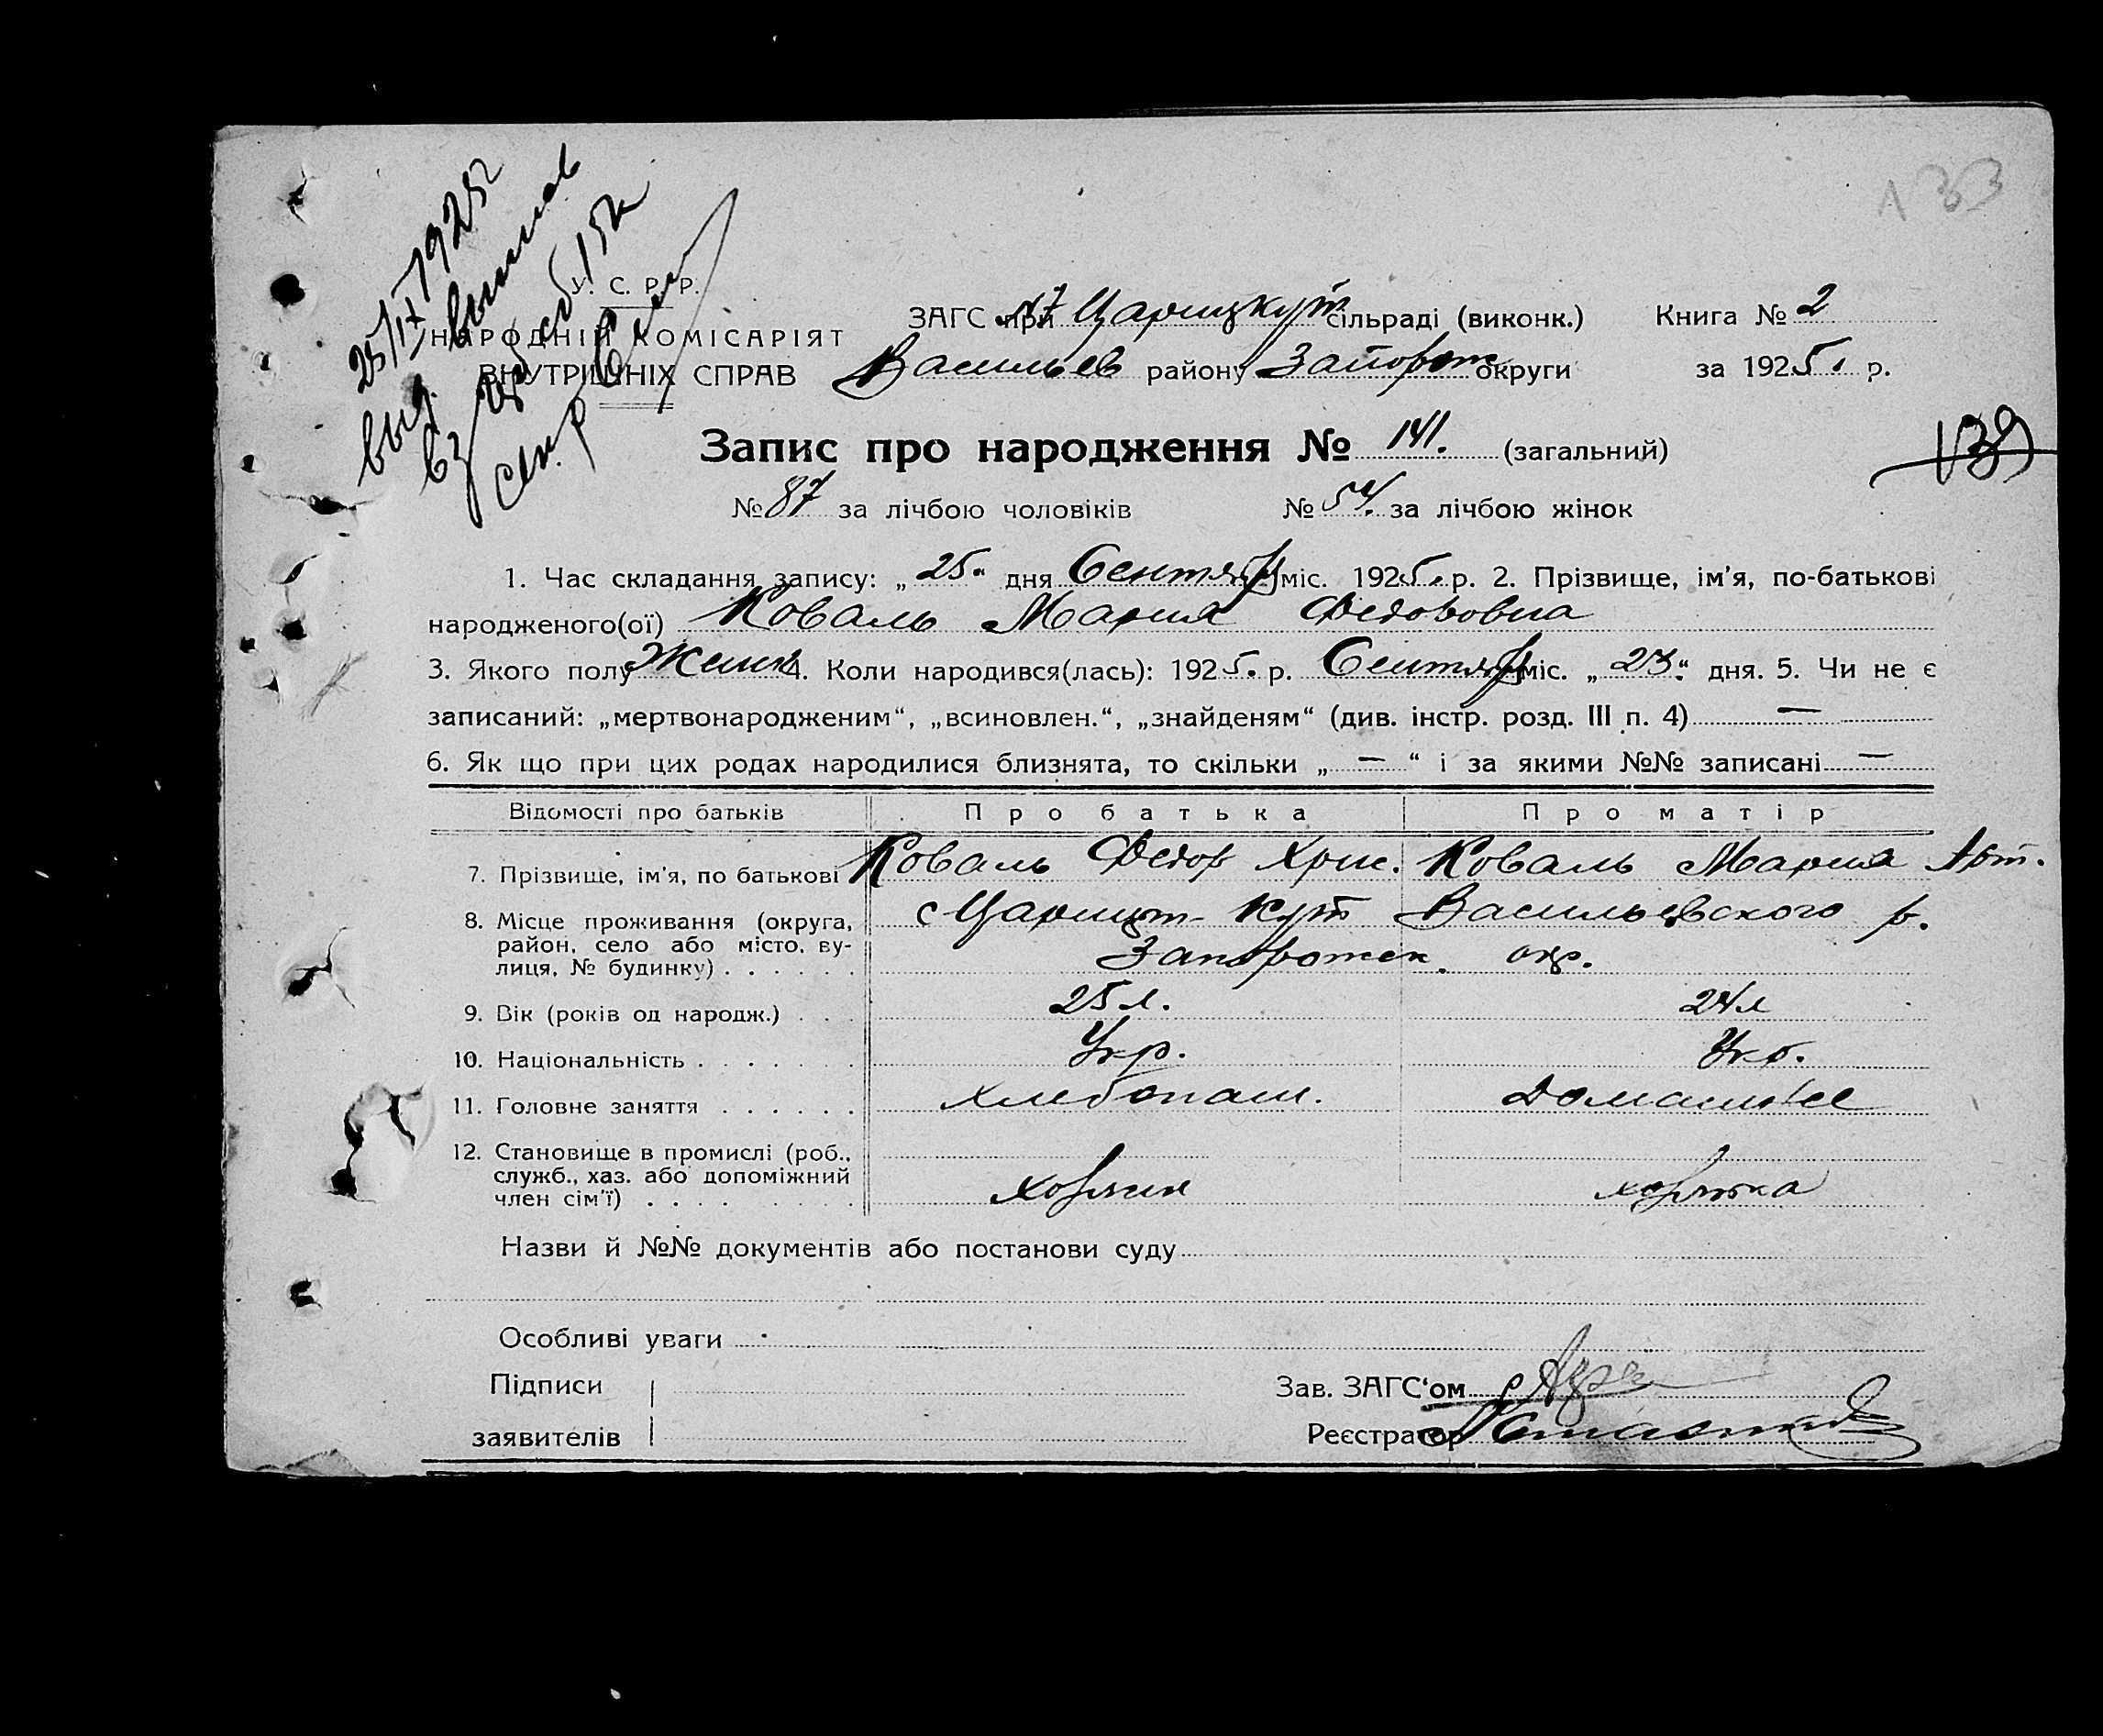 25/IX 1925 г
выд. выпись
У. С. Р. Р.
НАРОДНІЙ КОМІСАРІЯТ
ВНУТРІШНІХ СПРАВ
ЗАГС при Царицкут сільраді (виконк.) Книга № 2
Васильев району Запорож округи за 1925. р.
Запис про народження № 141. (загальний)
139
№ 87 за лічбою чоловіків № 54. за лічбою жінок
1. Час складання запису: „25“ дня Сентябр міс. 1925. р. 2. Прізвище, ім'я, по-батькові
народженого(ої) Коваль Мария Федоровна
3. Якого полу Женск 4. Коли народився(лась): 1925. р. Сентябр міс. „23“ дня. 5. Чи не є
записаний: „мертвонародженим“, „всиновлен.“, „знайденям“ (див. інстр. розд. III п. 4) —
6. Як що при цих родах народилися близнята, то скільки „ — “ і за якими №№ записані —
Відомості про батьків Про батька Про матір
7. Прізвище, ім'я, по батькові Коваль Федор Хрис. Коваль Мария Арт.
8. Місце проживання (округа, с Царицын-Кут Васильевского р.
район, село або місто, ву-
лиця, № будинку) Запорожск. окр.
9. Вік (років од народж.) 25 л. 24 л
10. Національність Укр. Укр.
11. Головне заняття хлебопаш. Домашнее
12. Становище в промислі (роб.,
служб., хаз. або допоміжний
член сім'ї) хозяин хозяйка
Назви й №№ документів або постанови суду
Особливі уваги
Підписи Зав. ЗАГС'ом
заявителів Реєстратор